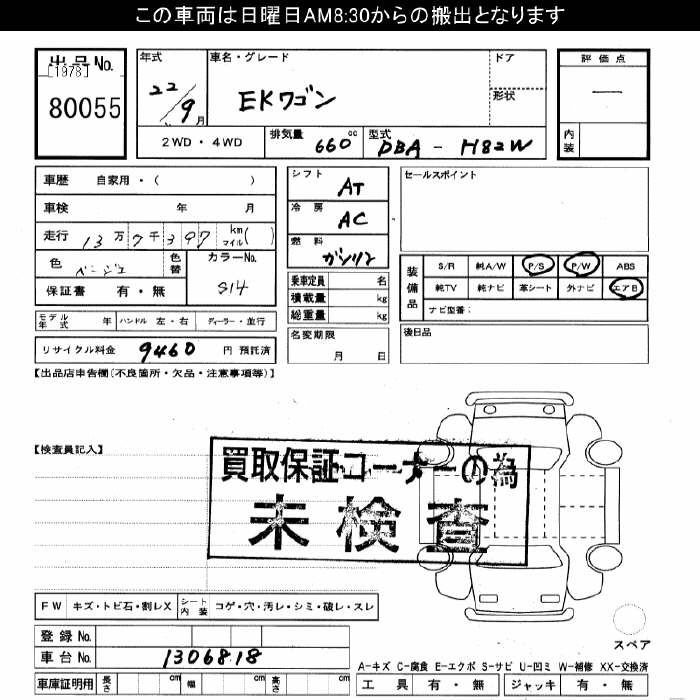 この車両は日曜日AM8:30からの搬出となります
出品No.
[1978]
80055
年式
22/9月
車名・グレード
EKワゴン
ドア
形状
評価点
―
内装
2WD・4WD
排気量
660cc
型式
DBA - H82W
車歴 自家用・( )
車検 年 月
走行 13万7千397 km マイル( )
色 ベージュ 色替
カラーNo.
S14
保証書 有・無
シフト
AT
冷房
AC
燃料
ガソリン
乗車定員 名
積載量 kg
総重量 kg
セールスポイント
装備品
S/R 純A/W P/S P/W ABS
純TV 純ナビ 革シート 外ナビ エアB
ナビ型番:
モデル年式 年 ハンドル 左・右 ディーラー・並行
名変期限
月 日
後日品
リサイクル料金 9460 円 預託済
【出品店申告欄(不良箇所・欠品・注意事項等)】
【検査員記入】
買取保証コーナーの為
未検査
FW キズ・トビ石・割レX
シート内装 コゲ・穴・汚レ・シミ・破レ・スレ
スペア
登録No.
車台No. 1306818
A-キズ C-腐食 E-エクボ S-サビ U-凹ミ W-補修 XX-交換済
車庫証明用 長さ cm 幅 cm 高さ cm
工具 有・無 ジャッキ 有・無